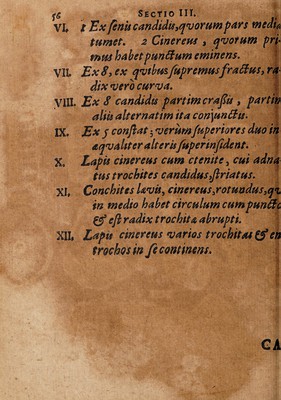 56 SECTIO III.
VI. 1 Ex senis candidis, quorum pars media
tumet. 2 Cinereus, quorum pri-
mus habet punctum eminens.
VII. Ex 8, ex quibus supremus fractus, ra-
dix verò curva.
VIII. Ex 8 candidis partim crassis, partim
aliis alternatim ita conjunctis.
IX. Ex 5 constat; verùm superiores duo in-
æqualiter alteris superinsident.
X. Lapis cinereus cum ctenite, cui adna-
tus trochites candidus, striatus.
XI. Conchites lævis, cinereus, rotundus, qu
in medio habet circulum cum puncto
& est radix trochitæ abrupti.
XII. Lapis cinereus varios trochitas & en
trochos in se continens.
CA